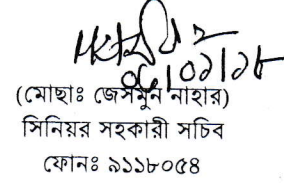 ০৮/০১/১৮
(মোছাঃ জেসমুন নাহার)
সিনিয়র সহকারী সচিব
ফোনঃ ৯১১৮০৫৪